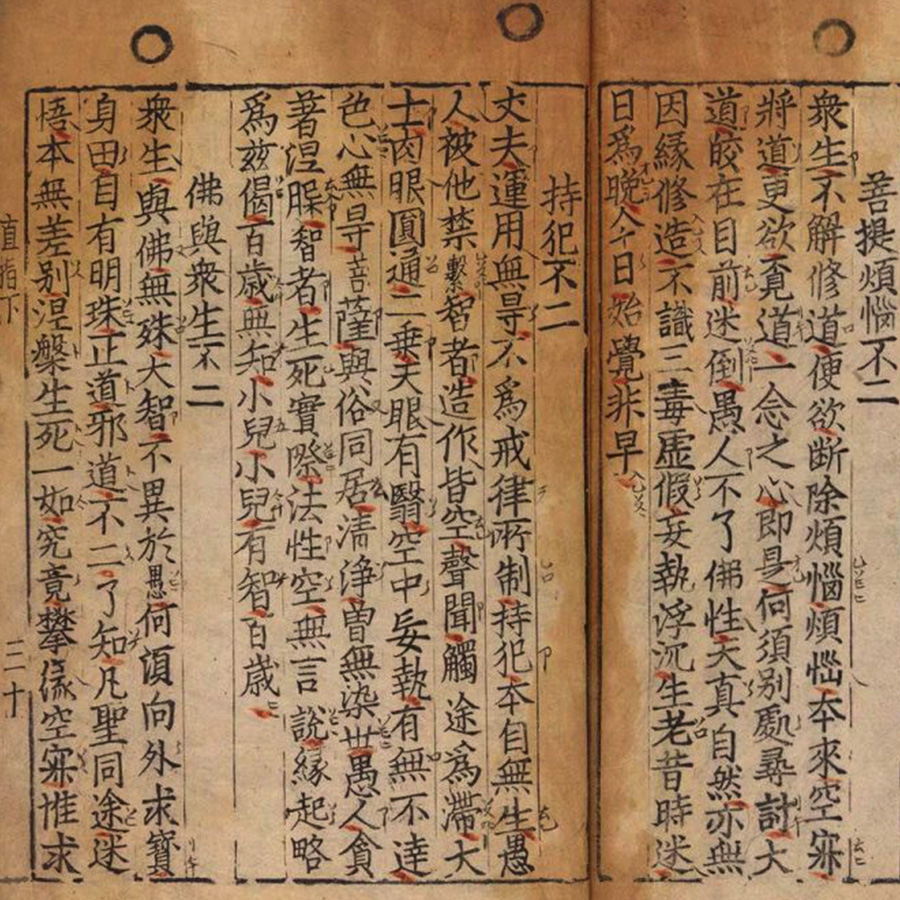 菩提煩惱不二
衆生不解修道便欲断除煩惱煩惱本來空㝠
將道更欲覔道一念之心即是何須别處尋討大
道皎在目前迷倒愚人不了佛性天真自然亦無
因緣修造不識三毒虛假妄執浮沉生老昔時迷
日爲晚今日始覺非早
持犯不二
丈夫運用無㝵不爲戒律所制持犯本自無生愚
人被他禁繫智者造作皆空聲聞觸途爲滯大
士肉眼圓通二乗天眼有翳空中妄執有無不達
色心無㝵菩薩與俗同居清淨曽無染世愚人貪
著涅槃智者生死實際法性空無言說緣起略
爲兹偈百歳無知小兒小兒有智百歳
佛與衆生不二
衆生與佛無殊大智不異於愚何湏向外求寳
身田自有明珠正道邪道不二了知凡聖同途迷
悟本無差别涅槃生死一如究竟攀緣空㝠惟求
直指下 三十